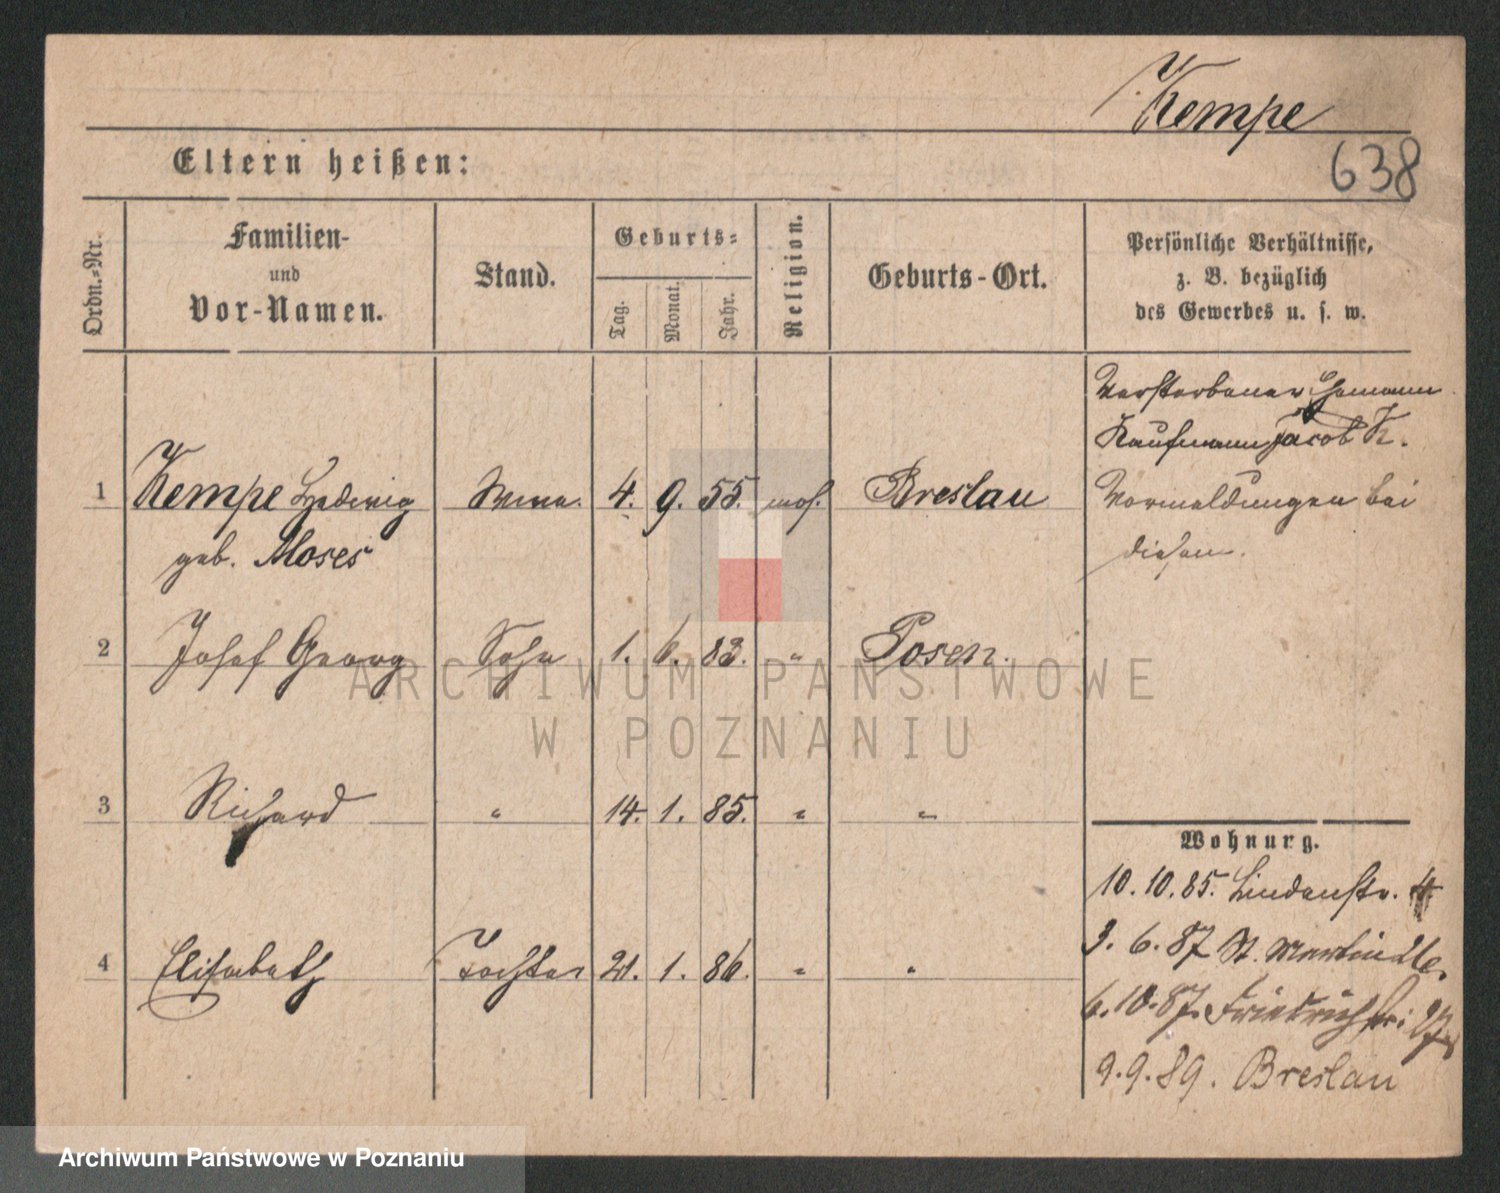 Kempe
638
Eltern heißen:
Ordn.-Nr.
Familien-
und
Vor-Namen.
Stand.
Geburts-
Tag.
Monat.
Jahr.
Religion.
Geburts-Ort.
Persönliche Verhältnisse,
z. B. bezüglich
des Gewerbes u. s. w.
Verstorbener Ehemann
Kaufmann Jacob K.
Vormeldungen bei
diesem.
1 Kempe Hedwig Wwe. 4. 9. 55. mos. Breslau
geb. Moses
2 Josef Georg Sohn 1. 6. 83. " Posen.
3 Richard " 14. 1. 85. " "
4 Elisabeth Tochter 21. 1. 86. " "
Wohnung.
10. 10. 85. Lindenstr. 4
3. 6. 87 St. Martin 26.
6. 10. 87. Friedrichstr.
9. 9. 89. Breslau
ARCHIWUM PAŃSTWOWE
W POZNANIU
Archiwum Państwowe w Poznaniu